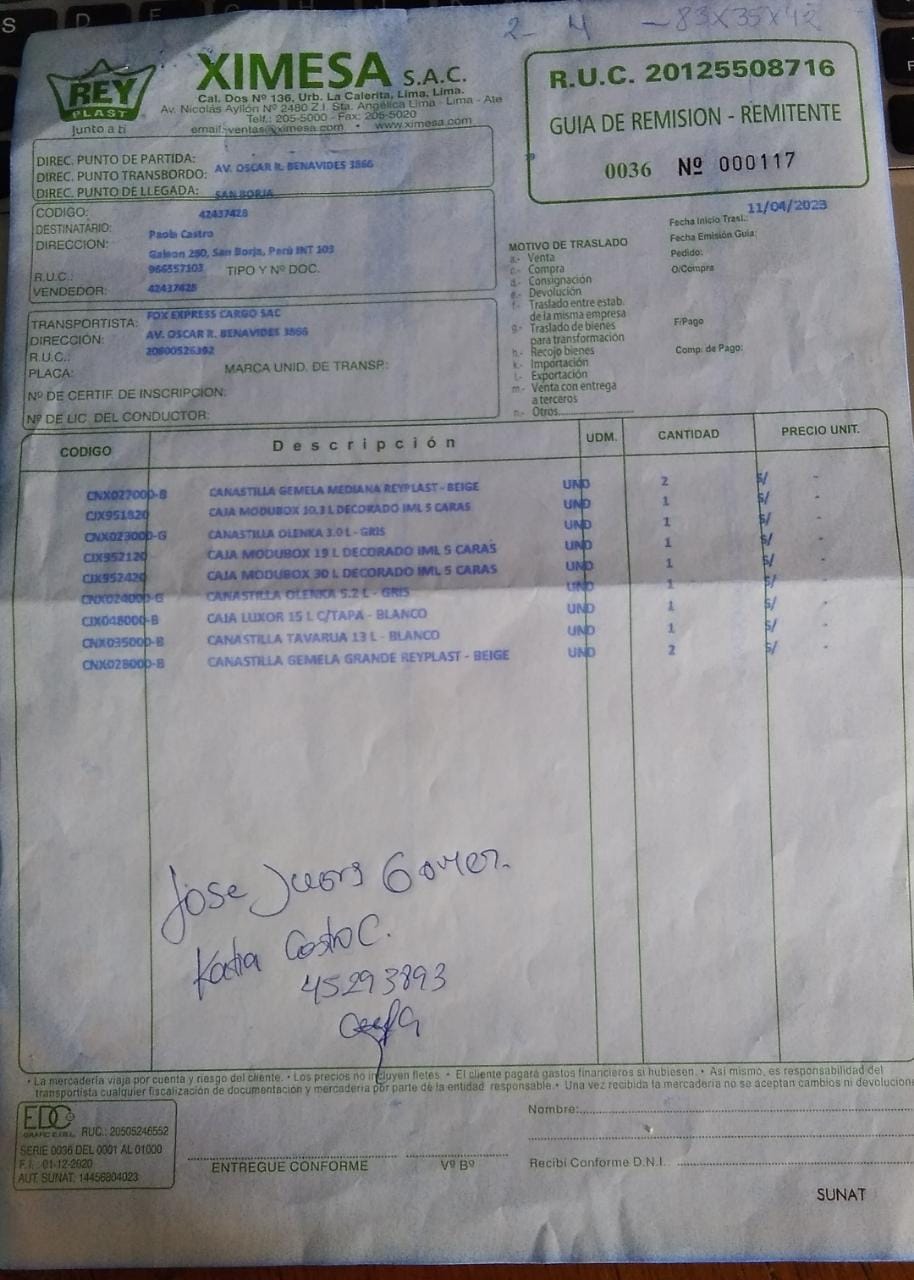 2 4 - 83X35X42
REY
PLAST
Junto a ti
XIMESA S.A.C.
Cal. Dos Nº 136, Urb. La Calerita, Lima, Lima.
Av. Nicolás Ayllón Nº 2480 Z.I. Sta. Angélica Lima - Lima - Ate
Telf.: 205-5000 - Fax: 205-5020
email: ventas@ximesa.com • www.ximesa.com
R.U.C. 20125508716
GUIA DE REMISION - REMITENTE
0036 Nº 000117
DIREC. PUNTO DE PARTIDA:
DIREC. PUNTO TRANSBORDO: AV. OSCAR R. BENAVIDES 3866
DIREC. PUNTO DE LLEGADA: SAN BORJA
CODIGO: 42437428
DESTINATARIO: Paola Castro
DIRECCION: Galeon 250, San Borja, Perú INT 103
R.U.C.: 966357103 TIPO Y Nº DOC.
VENDEDOR: 42437428
11/04/2023
Fecha Inicio Trasl.:
Fecha Emisión Guia:
Pedido:
O/Compra
F/Pago
Comp. de Pago:
MOTIVO DE TRASLADO
a.- Venta
c.- Compra
d.- Consignación
e.- Devolución
f.- Traslado entre estab.
de la misma empresa
g.- Traslado de bienes
para transformación
h.- Recojo bienes
k.- Importación
l.- Exportación
m.- Venta con entrega
a terceros
n.- Otros
TRANSPORTISTA: FOX EXPRESS CARGO SAC
DIRECCIÓN: AV. OSCAR R. BENAVIDES 3866
R.U.C.: 20600526392
PLACA: MARCA UNID. DE TRANSP.:
Nº DE CERTIF DE INSCRIPCION:
Nº DE LIC. DEL CONDUCTOR:
CODIGO Descripción UDM. CANTIDAD PRECIO UNIT.
CNX027000-B CANASTILLA GEMELA MEDIANA REYPLAST - BEIGE UND 2 S/ -
CJX951820 CAJA MODUBOX 10.3 L DECORADO IML 5 CARAS UND 1 S/ -
CNX023000-G CANASTILLA OLENKA 3.0 L - GRIS UND 1 S/ -
CJX952120 CAJA MODUBOX 19 L DECORADO IML 5 CARAS UND 1 S/ -
CJX952420 CAJA MODUBOX 30 L DECORADO IML 5 CARAS UND 1 S/ -
CNX024000-G CANASTILLA OLENKA 5.2 L - GRIS UND 1 S/ -
CJX048000-B CAJA LUXOR 15 L C/TAPA - BLANCO UND 1 S/ -
CNX035000-B CANASTILLA TAVARUA 13 L - BLANCO UND 1 S/ -
CNX028000-B CANASTILLA GEMELA GRANDE REYPLAST - BEIGE UND 2 S/ -
Jose
Katia Castro C.
45293893
• La mercadería viaja por cuenta y riesgo del cliente. • Los precios no incluyen fletes. • El cliente pagará gastos financieros si hubiesen. • Así mismo, es responsabilidad del
transportista cualquier fiscalización de documentación y mercadería por parte de la entidad responsable. • Una vez recibida la mercadería no se aceptan cambios ni devolucion
EDC
GRAFIC E.I.R.L. RUC.: 20505246552
SERIE 0036 DEL 0001 AL 01000
F.I.: 01-12-2020
AUT. SUNAT: 14458804023
ENTREGUE CONFORME
Vº Bº
Nombre:
Recibi Conforme D.N.I.
SUNAT